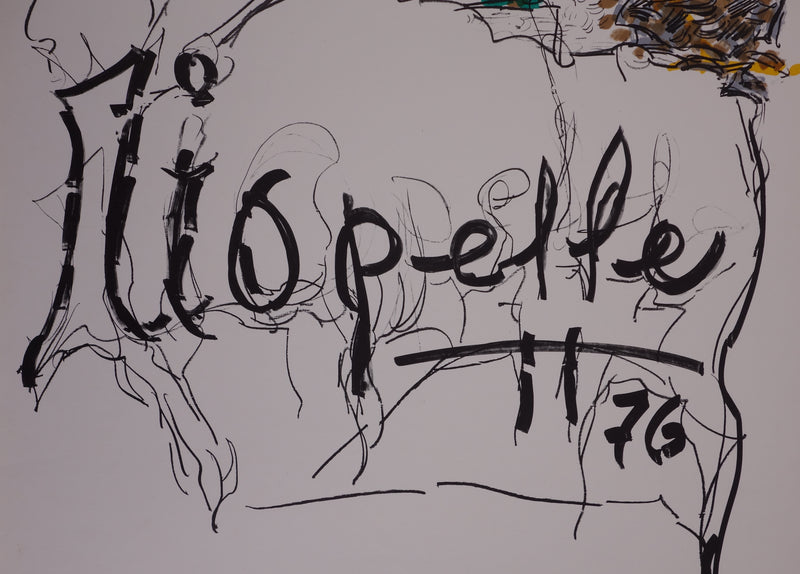 Riopelle
76